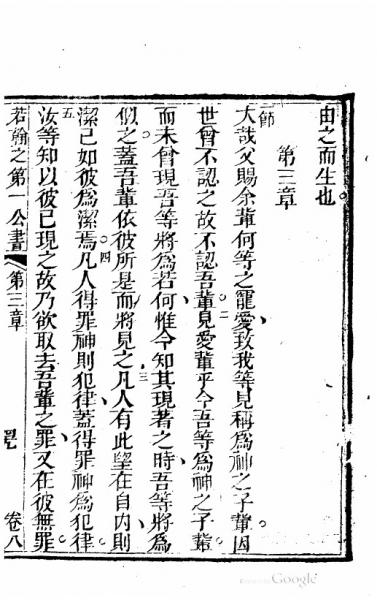 由之而生也。
第三章
一節大哉父賜余輩何等之寵愛、致我等見稱為神之子輩因
世曾不認之故不認吾輩。二見愛輩乎今吾等為神之子輩。
而未曾現吾等將為若何、惟今知其現著之時、吾等將為
似之、蓋吾輩依彼所是而將見之。三凡人有此望在自內、則
潔己如彼為潔焉。四凡人得罪神則犯律、蓋得罪神為犯律。
五汝等知以彼已現之故乃欲取去吾輩之罪、又在彼無罪。
若翰之第一公書 第三章 卷八
Google